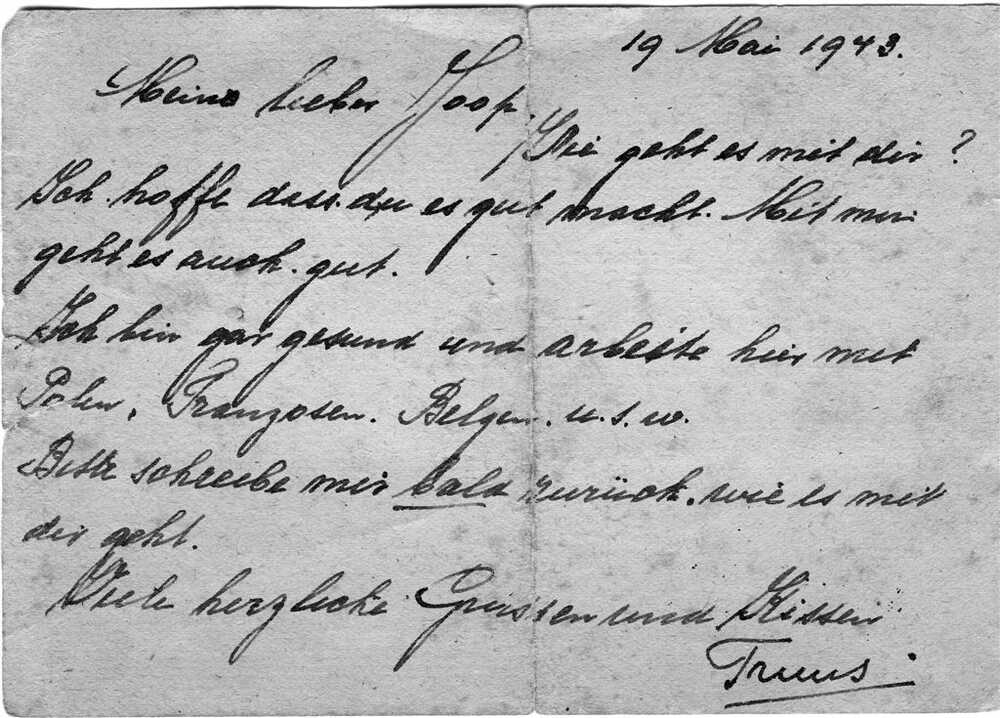 19 Mai 1943.
Meine lieber Joop,
Wie geht es mit dir?
Ich hoffe dass du es gut macht. Mit mir
geht es auch gut.
Ich bin gar gesund und arbeite hier mit
Polen, Franzosen. Belgen. u.s.w.
Bitte schreibe mir bald zurück. wie es mit
dir geht.
Viele herzliche Grussen und Kissen
Truus.